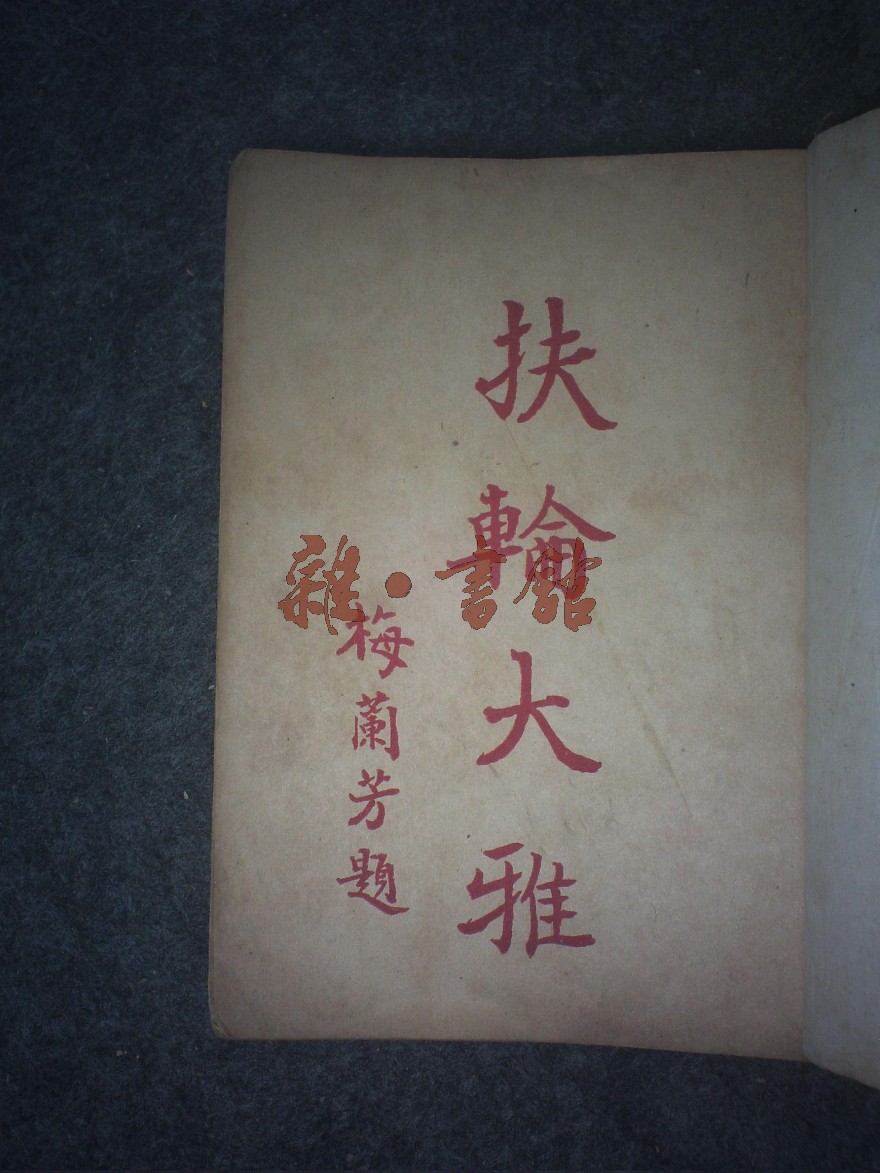 扶輪大雅
梅蘭芳題
雜·書館